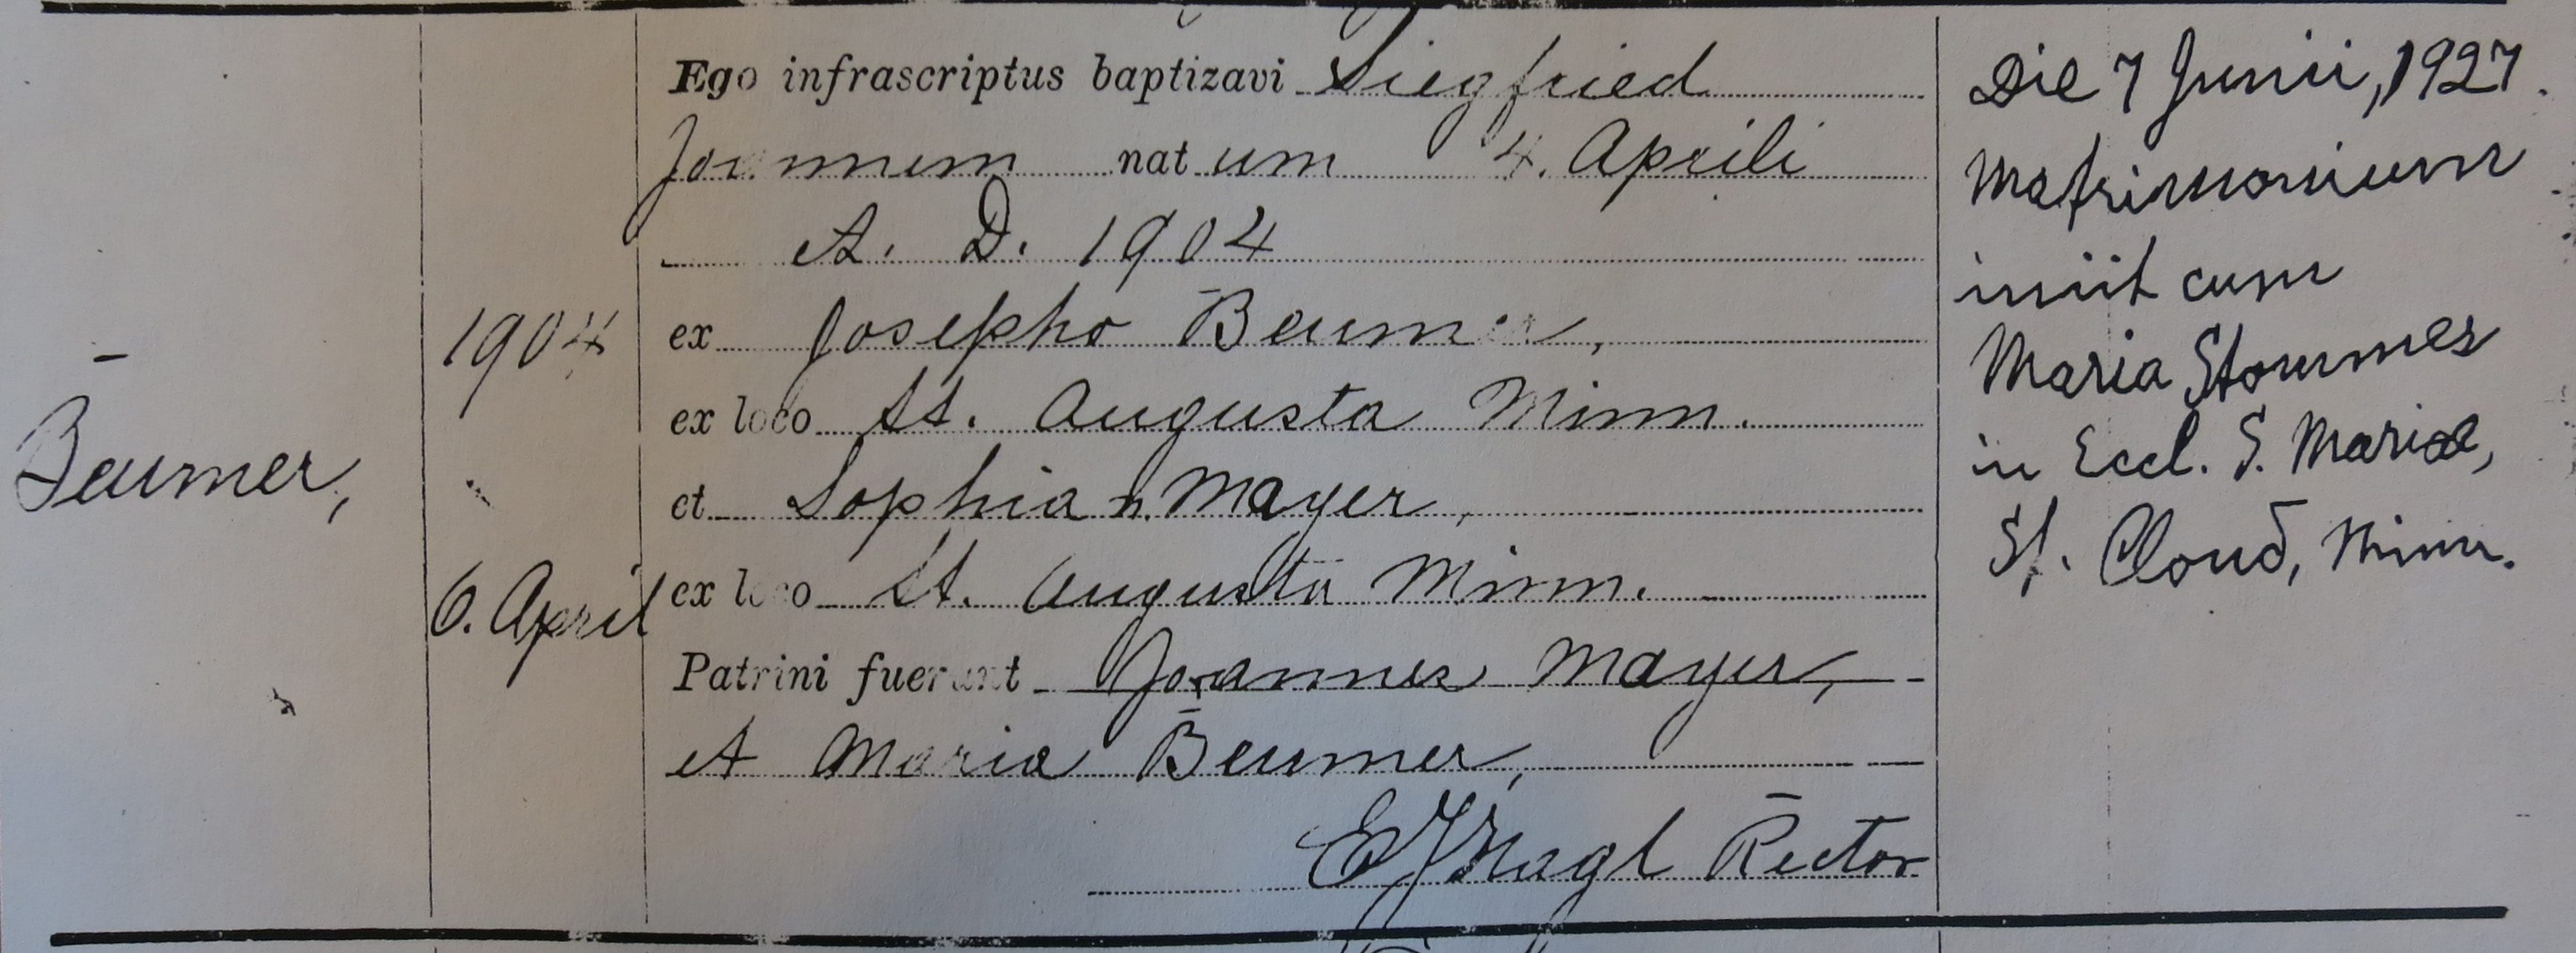 Beumer,
1904
6. April
Ego infrascriptus baptizavi Siegfried
Joannem natum 4. Aprili
A. D. 1904
ex Josepho Beumer,
ex loco St. Augusta Minn.
et Sophia n. Mayer,
ex loco St. Augusta Minn.
Patrini fuerunt Joannes Mayer,
et Maria Beumer,
Rector
Die 7 Junii, 1927.
Matrimonium
iniit cum
Maria
in Eccl. S. Mariae,
St. Cloud, Minn.